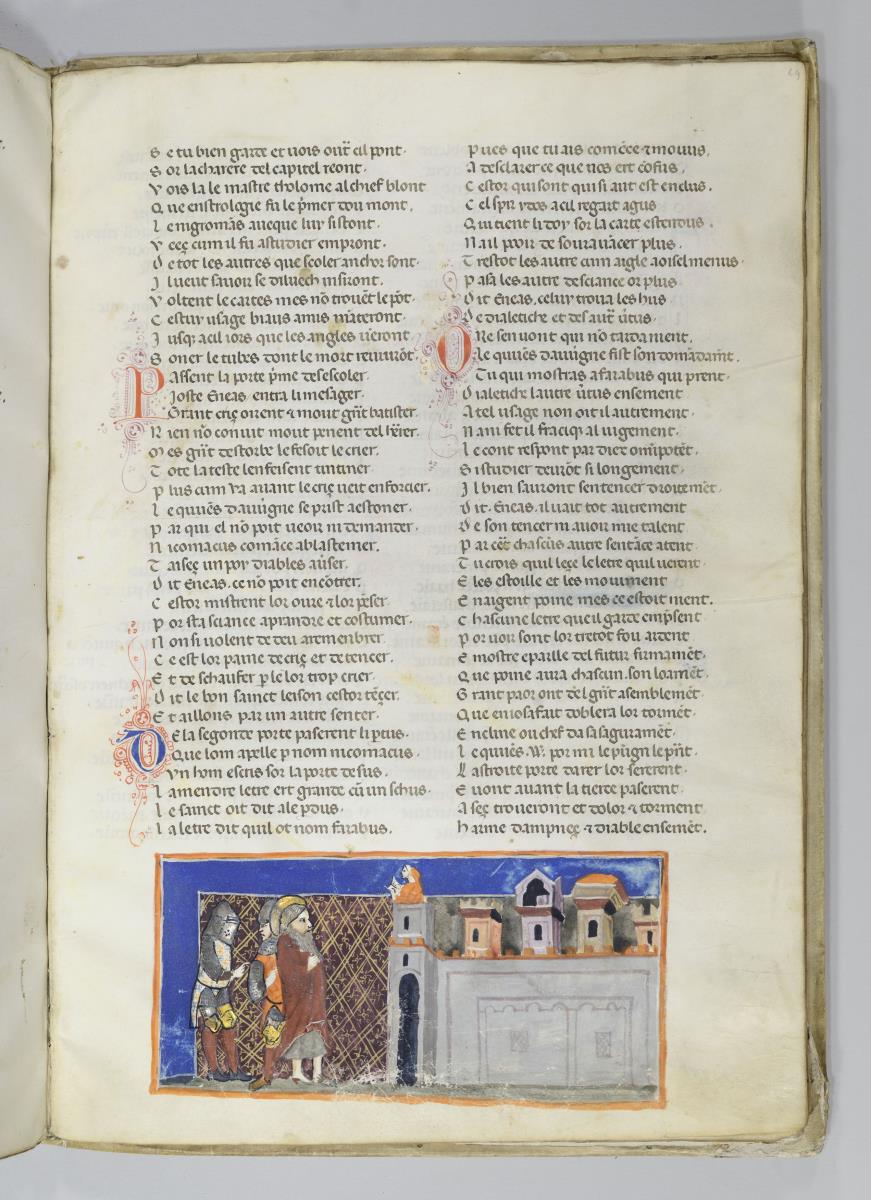 S e tu bien garde et uois outͬ cil pont·
S or la chaere del capitel reont·
V ois la le mastre tholome al chief blont
Q ue enstrologie fu le p̃mer dou mont·
L e nigromãs aueque luy sistont·
V eeç cum il fu astudier empront·
D e tot les autres que scoler anchor sont·
I l ueut sauoir se diluech insiront·
V oltent le cartes mes nõ trouẽt le põt·
C estuy usage biaus amis m̃teront·
J usq; a cil iors que les angles ũeront
S oner le tubes dont le mort reuiurõt·
P assent la porte p̃me des escoler·
I oste Eneas· entra li mesager·
G rant criç oirent ⁊ mout gr̃t batister
R ien nõ conuit mout penent del
M es gr̃t destorbe le fesoit le crier·
T ote la teste lenfeisent tintiner·
P lus cum ua auant le criç ueit enforcier·
L e quiẽs dauũgne se prist a estoner·
P ar qui el nõ poit ueoir ni demander·
N icomacus comãce a blastemer·
T aiseç un por diables aũser·
D it Eneas· ce nõ poit encõtrer·
C estor mistrent lor oure ⁊ lor p̃ser·
P or sta sciance aprandre et costumer·
N on si uolent de deu aremenbrer·
C e est lor paine de criç et de tencer·
E t de schaufer p̱ le lor trop crier·
D it le bon sainct leison cestor tẽçer·
E t aillons par un autre senter·
D e la segonde porte paserent li p̱tus·
Q ue lom apelle p̱ nom nicomacus·
U n hom escris sor la porte desus·
L amendre letre ert grante cũ un schus·
L e sainct oit dit ale p̱dus·
L a letre dit quil ot nom farabus·
P ues que tu ais comẽcé ⁊ mouus·
A desclarer ce que nos ert cõfus·
C estor qui sont qui si aut est enclus·
C el
Q ui tient li doy sor la carte estendus·
N a il pooir de soura uãcer plus·
T restot les autre cum aigle a oisel menus·
P asa les autre de sciance or plus
D it Eneas· celuy troua les hus
D e dialetiche et des autͬ ũtus·
O R e sen uont qui nõ tarda nient·
L e quiẽs dauũgne fist son domãdam̃t·
T u qui mostras a farabus qui prent·
D ialetiche lautre ũtus ensement
A tel usage non oit il autrement·
N ani fet il al uigement·
L e cont respont par diex om̃ipotẽt·
S istudier deurõt si longement·
I l bien sauront sentencer droitemẽt·
D it· Eneas· il uait tot autrement
D e son tencer ni auoir mie talent
P ar cẽt chascũs autre sentãce atent·
T u crois quil leçe le letre quil uerent·
E les estoille et les mouiment
E naigent poine mes ce estoit nient·
C hascune letre que il garde emp̃sent
P or uoir sont lor tretot fou ardent
E mostre epaille del futur firmamẽt·
Q ue poine aura chascun· son loamẽt·
G rant paor ont del gr̃t asemblemẽt·
Q ue eniosafait doblera lor tormẽt·
E ncline ou chef da sa siguramẽt·
L e quiẽs· W· por mi le pũgn le p̃nt·
L astroite porte darer lor sererent·
E uont auant la tierce paserent·
A seç troueront et dolor ⁊ torment
H arme dampneç ⁊ diable ensemẽt·